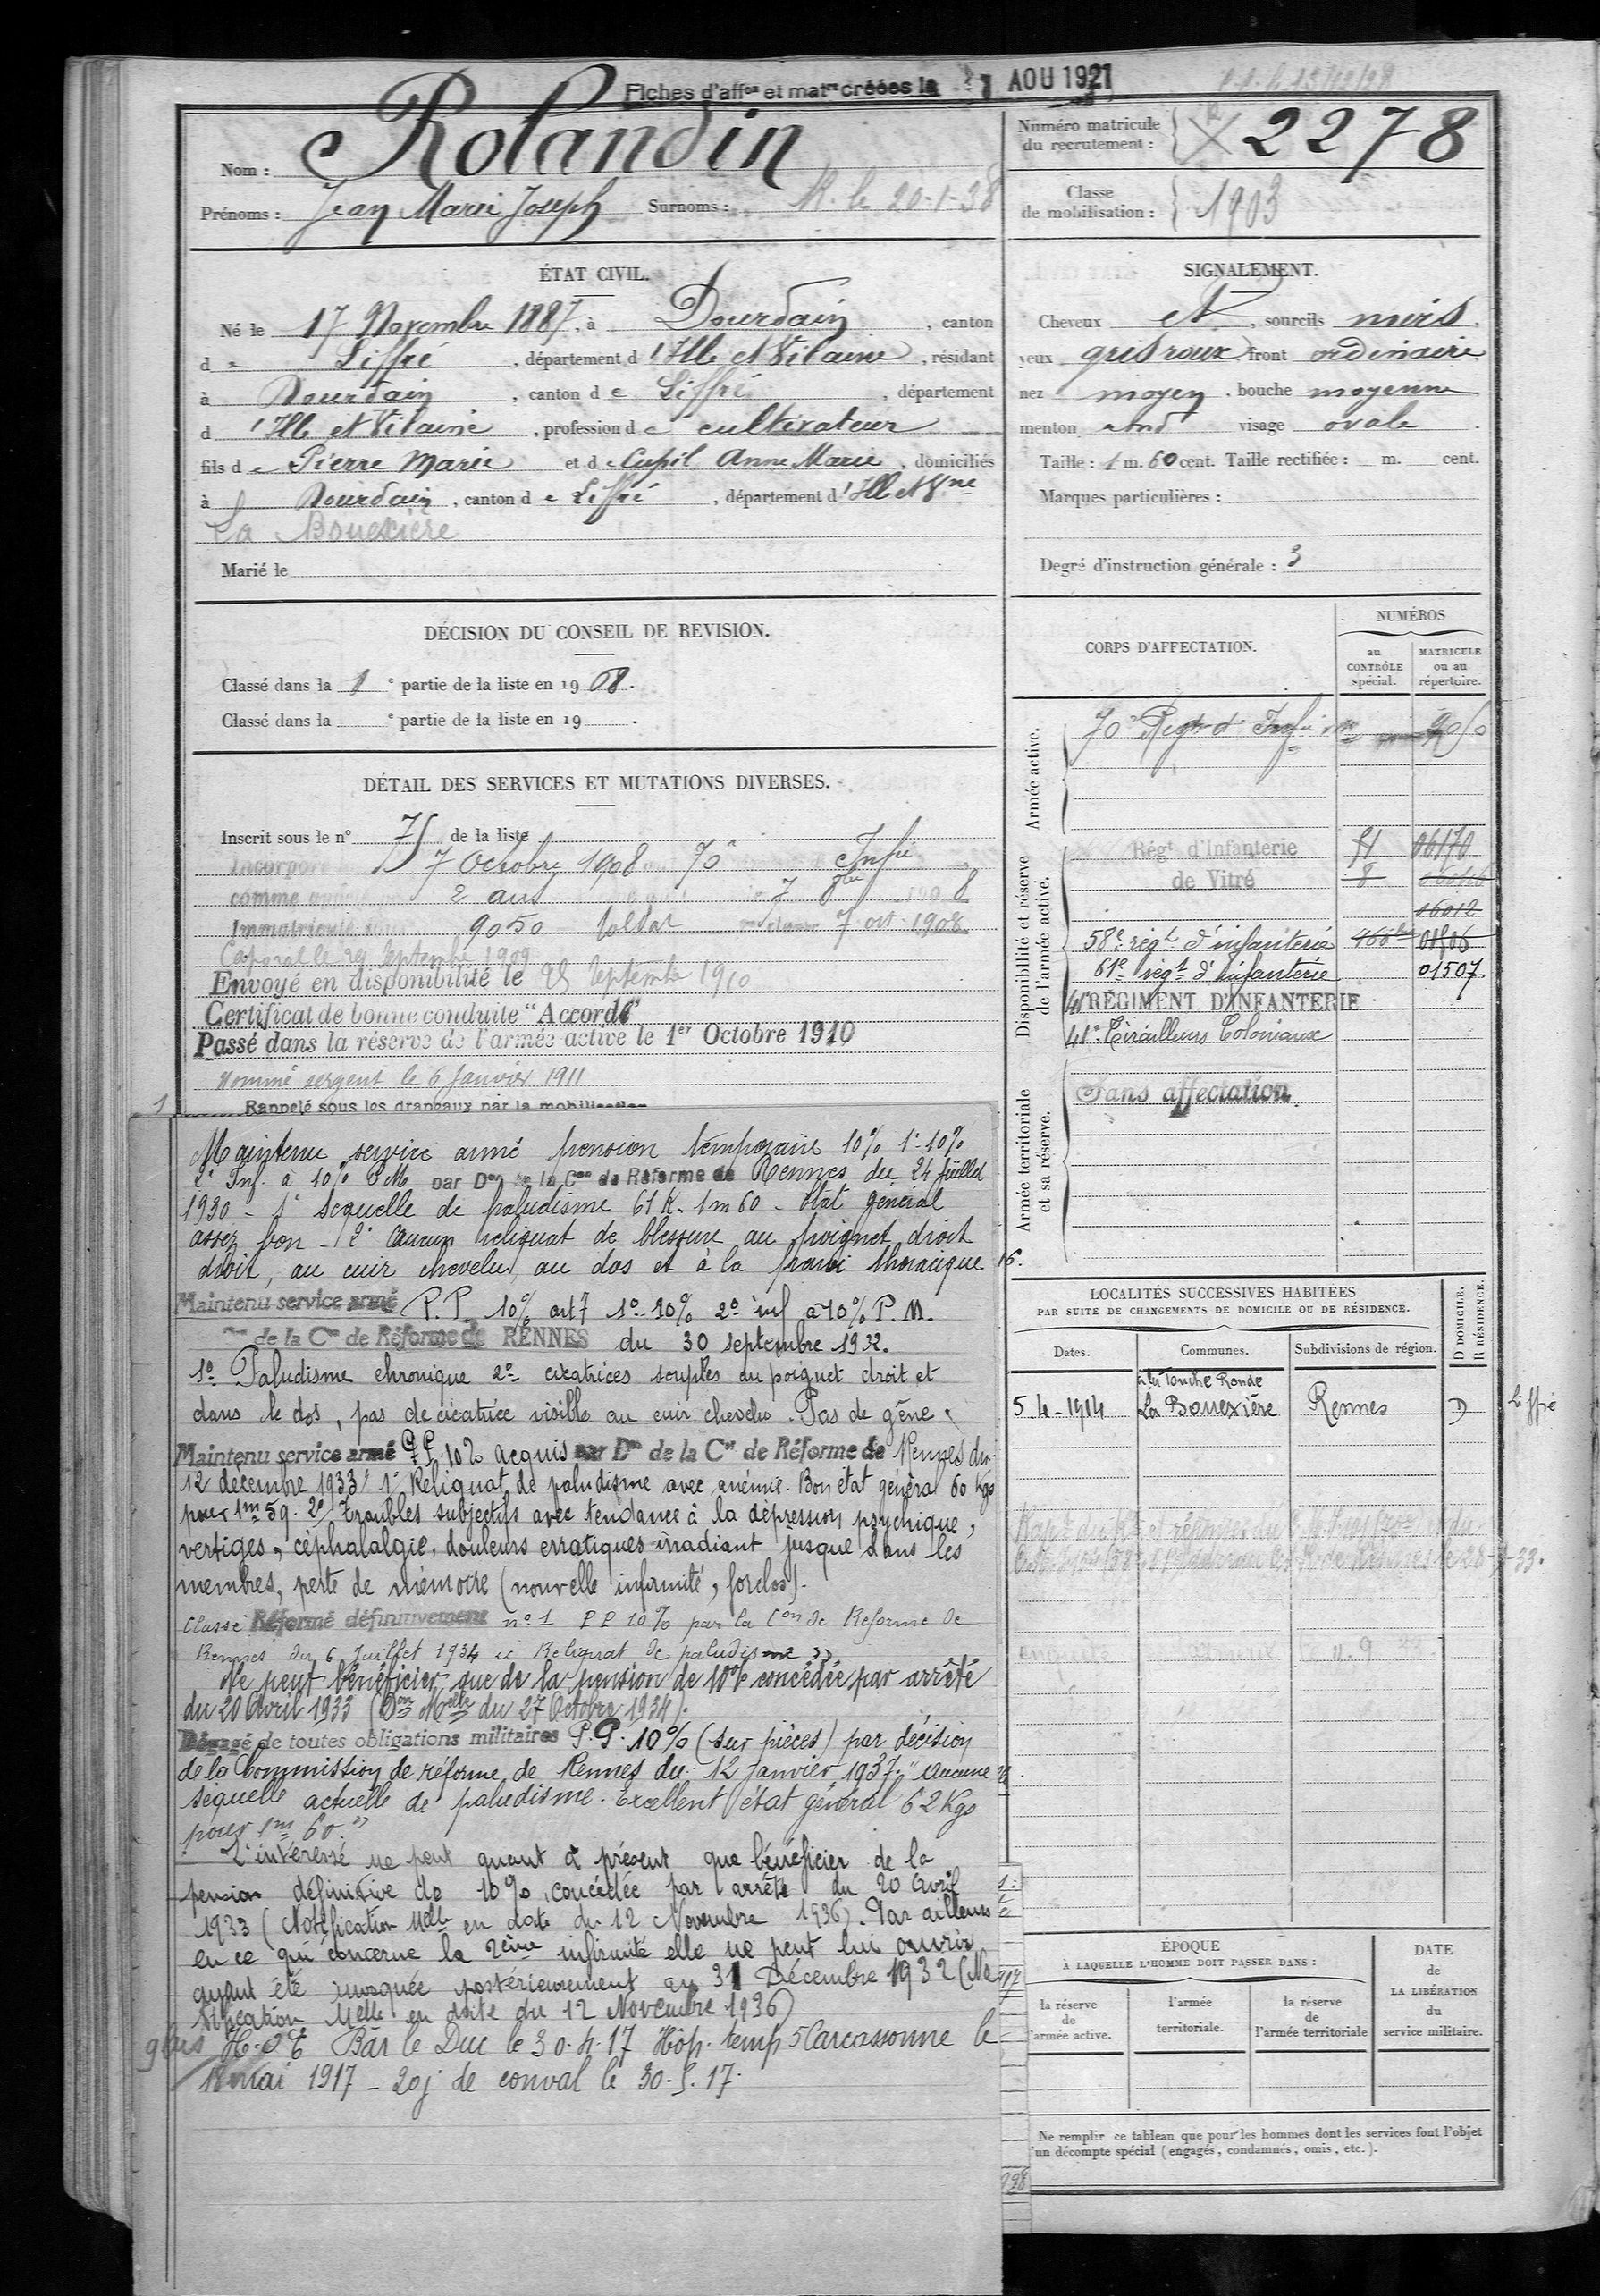 Fiches d'aff^on et mat^re créées le 7 AOU 1921
Nom : Rolandin
Prénoms : Jean Marie Joseph Surnoms : R. le 20-1-38
Numéro matricule du recrutement : 2278
Classe de mobilisation : 1903
ÉTAT CIVIL.
Né le 17 Novembre 1887, à Dourdain, canton
de Liffré, département d'Ille et Vilaine, résidant
à Dourdain, canton de Liffré, département
d'Ille et Vilaine, profession de cultivateur
fils de Pierre Marie et de Cupil Anne Marie, domiciliés
à Dourdain, canton de Liffré, département d'Ille et V^ne
La Bouexière
Marié le
SIGNALEMENT.
Cheveux et, sourcils noirs
yeux gris roux, front ordinaire
nez moyen, bouche moyenne
menton rond visage ovale
Taille : 1 m. 60 cent. Taille rectifiée : m. cent.
Marques particulières :
Degré d'instruction générale : 3
DÉCISION DU CONSEIL DE REVISION.
Classé dans la 1e partie de la liste en 1908.
Classé dans la e partie de la liste en 19 .
DÉTAIL DES SERVICES ET MUTATIONS DIVERSES.
Inscrit sous le n° 75 de la liste
Incorporé 7 Octobre 1908 70e Inf^ie
comme 2 ans 7 8bre 1908
Immatriculé 9050 soldat 7 oct 1908
Caporal le 29 Septembre 1909
Envoyé en disponibilité le 25 Septembre 1910
Certificat de bonne conduite "Accordé"
Passé dans la réserve de l'armée active le 1er Octobre 1910
Nommé sergent le 6 Janvier 1911
Rappelé sous les drapeaux par la mobilisation
Maintenu service armé pension temporaire 10% 1° 10%
2° Inf. à 10% P.M. par D^on de la C^on de Réforme de Rennes du 24 juillet
1930 - 1° séquelle de paludisme 61 K. 1m60 - état général
assez bon - 2° aucun reliquat de blessure au poignet droit
droit, au cuir chevelu, au dos et à la paroi thoracique
Maintenu service armé P.P. 10% art 7 1° 10% 2° inf à 10% P.M.
de la C^on de Réforme de RENNES du 30 septembre 1932.
1° Paludisme chronique 2° cicatrices souples au poignet droit et
dans le dos, pas de cicatrice visible au cuir chevelu. Pas de gêne.
Maintenu service armé P.P. 10% acquis par D^on de la C^on de Réforme de Rennes du
12 décembre 1933 1° Reliquat de paludisme avec anémie. Bon état général 60 Kgs
pour 1m59. 2° Troubles subjectifs avec tendance à la dépression psychique,
vertiges, céphalalgie, douleurs erratiques irradiant jusque dans les
membres, perte de mémoire (nouvelle infirmité, forclos).
Classé Réformé définitivement n° 1 P P 10% par la C^on de Réforme de
Rennes du 6 Juillet 1934 « Reliquat de paludisme »
Ne peut bénéficier que de la pension de 10% concédée par arrêté
du 20 Avril 1933 (D^on M^elle du 27 Octobre 1934).
Dégagé de toutes obligations militaires P.P. 10% (sur pièces) par décision
de la Commission de réforme de Rennes du 12 janvier 1937. "Aucune
séquelle actuelle de paludisme. Excellent état général 62 Kgs
pour 1m 60"
L'intéressé ne peut quant à présent que bénéficier de la
pension définitive de 10% concédée par arrêté du 20 Avril
1933 (Notification M^elle en date du 12 Novembre 1936). Par ailleurs
en ce qui concerne la 2ème infirmité elle ne peut lui ouvrir
ayant été invoquée postérieurement au 31 Décembre 1932 (No
tification M^elle en date du 12 Novembre 1936)
H.O.E Bar le Duc le 30.4.17 Hôp. temp 5 Carcassonne le
18 mai 1917 - 20j de conval le 30.5.17.
CORPS D'AFFECTATION.
NUMÉROS
au CONTRÔLE spécial.
MATRICULE ou au répertoire.
Armée active.
70e Rég^t d'Inf^ie 9050
Disponibilité et réserve de l'armée active.
Rég^t d'Infanterie 51 06170
de Vitré 8
16012
58e rég^t d'infanterie 01506
61e rég^t d'infanterie 01507
41e RÉGIMENT D'INFANTERIE
41e Tirailleurs Coloniaux
Armée territoriale et sa réserve.
Sans affectation.
LOCALITÉS SUCCESSIVES HABITÉES
PAR SUITE DE CHANGEMENTS DE DOMICILE OU DE RÉSIDENCE.
Dates. Communes. Subdivisions de région. D DOMICILE. R RÉSIDENCE.
à la Touche Ronde
5-4-1914 La Bouexière Rennes D Liffré
ÉPOQUE
À LAQUELLE L'HOMME DOIT PASSER DANS :
la réserve de l'armée active.
l'armée territoriale.
la réserve de l'armée territoriale
DATE de LA LIBÉRATION du service militaire.
Ne remplir ce tableau que pour les hommes dont les services font l'objet
d'un décompte spécial (engagés, condamnés, omis, etc.).